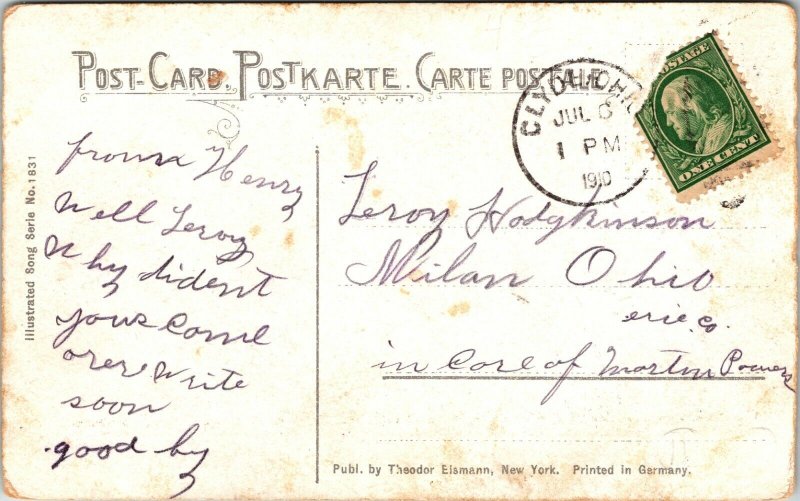 POST-CARD. POSTKARTE. CARTE POSTALE
CLYDE, OHIO
JUL 6
1 PM
1910
POSTAGE
ONE CENT
Illustrated Song Serie No. 1831
from Henry
Well Leroy
Why dident
you come
orer write
soon
good by
Leroy Hodgkinson
Milan Ohio
erie co.
in Care of Morton Powers
Publ. by Theodor Eismann, New York. Printed in Germany.